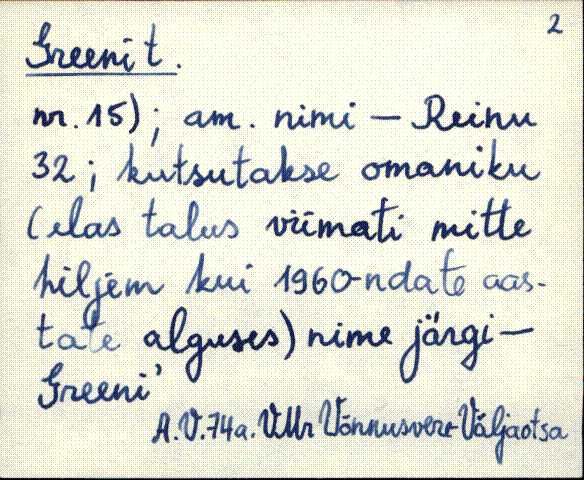 2
Greeni t.
nr. 15); am. nimi — Reinu
32; kutsutakse omaniku
(elas talus viimati mitte
hiljem kui 1960-ndate aas-
tate alguses) nime järgi —
Greeni'
A.V. 74a. VMr Võnnusvere-Väljaotsa